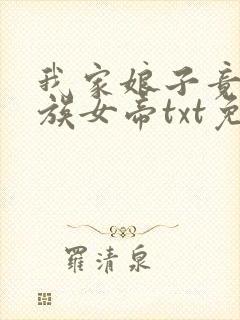 我家娘子竟
族女帝txt免
羅清泉